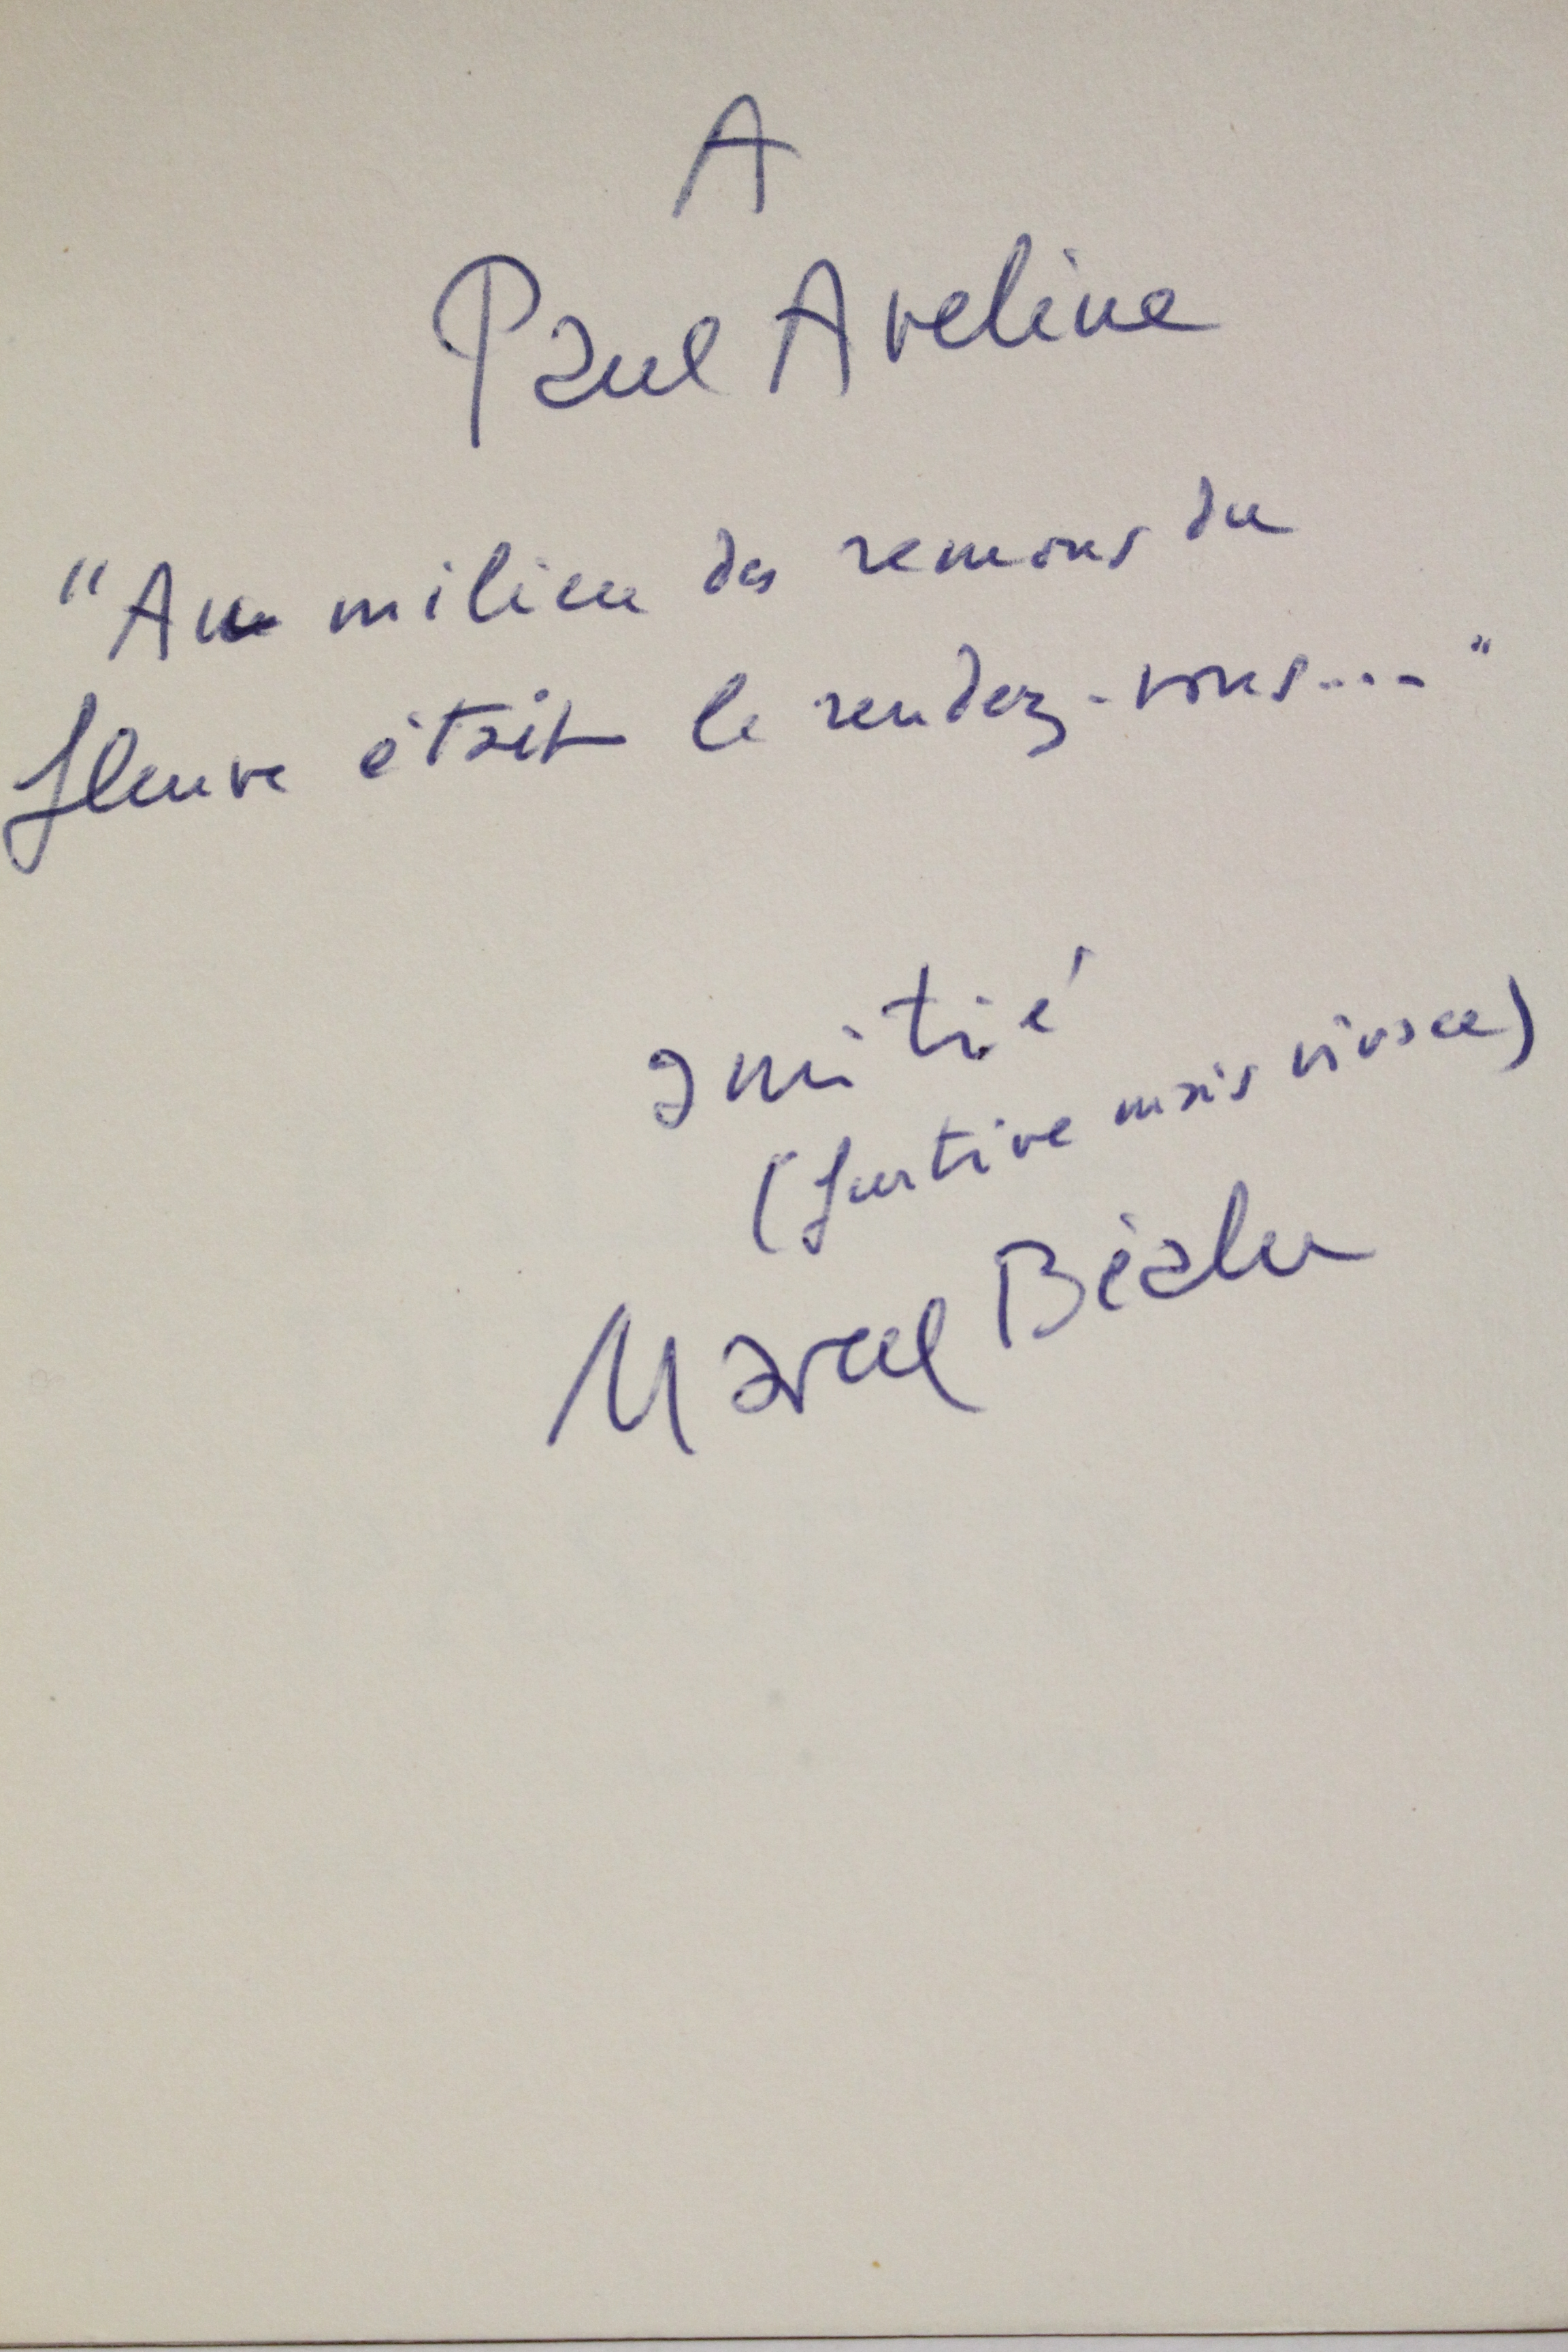 A
Paul Aveline
"Au milieu des remous du
fleuve était le rendez-vous...."
amitié
(furtive mais vivace)
Marcel Béalu